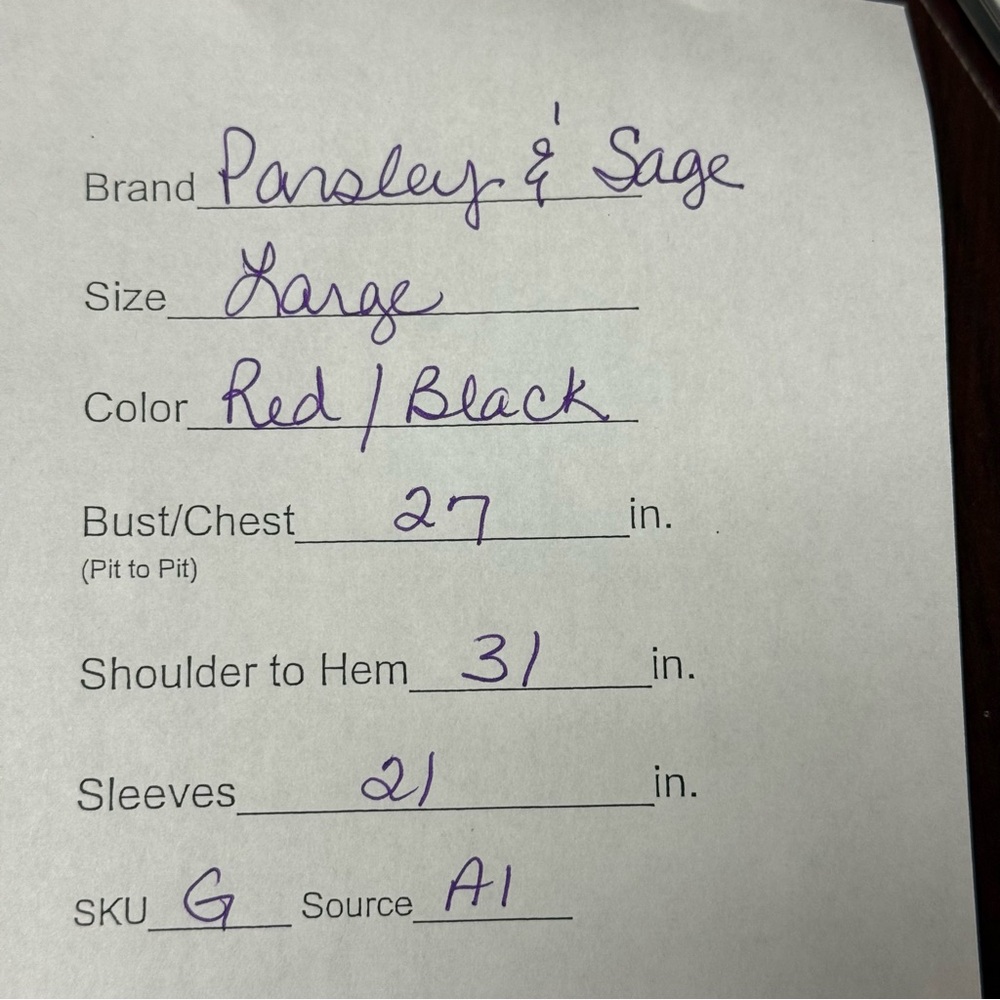 Brand Parsley & Sage
Size Large
Color Red / Black
Bust/Chest 27 in.
(Pit to Pit)
Shoulder to Hem 31 in.
Sleeves 21 in.
SKU G Source A1